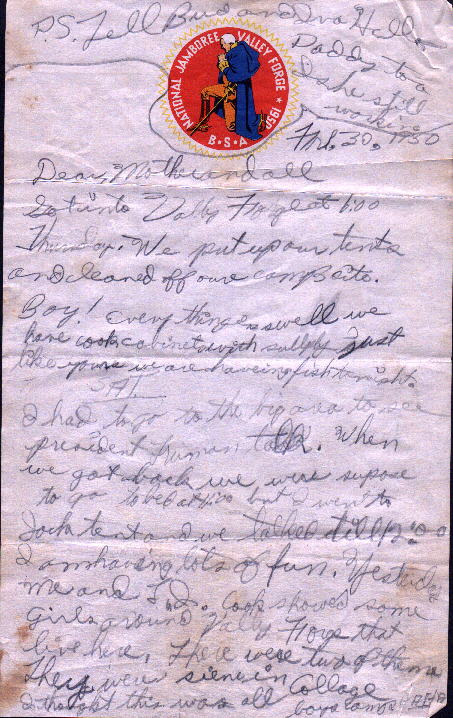 P.S. Tell Bud and Iva Hello
Daddy too
Is he still
working
NATIONAL JAMBOREE VALLEY FORGE ★ 1950
B·S·A
30. 1950
Dear Mother and all
Got into Vally Forge at 1:00
Thursday. We put up our tents
and cleaned off oure campsite.
Boy! everything is swell we
have cook cabinet with supply just
like yours we are haveing fish tonight.
SAT.
I had to go to the big area to see
president truman talk. When
we got back we were supose
to go to bed at but I went to
Jack tent and we talked till 12:00
I am having lots of fun. Yesterday
me and J.D. Cook showed some
Girls around Vally Forge that
live here. There were two of them
They were in Collage
I thought this was all boys camp